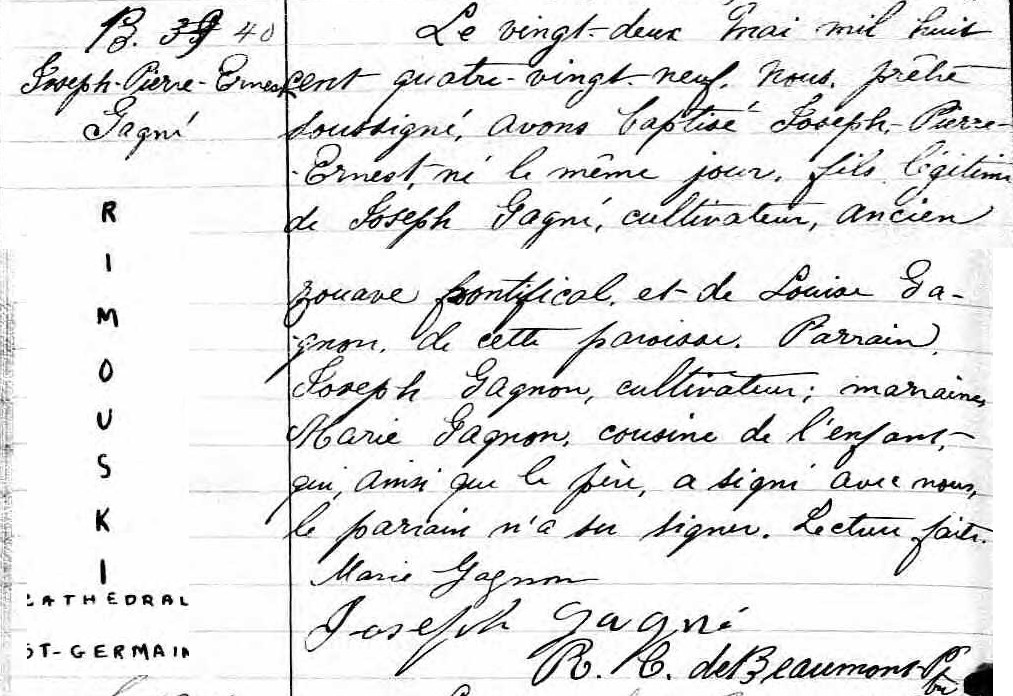 B. 39 40
Joseph-Pierre-Ernest
Gagné
R
I
M
O
U
S
K
I
CATHEDRAL
ST-GERMAIN
Le vingt-deux Mai mil huit
cent quatre-vingt-neuf, nous, prêtre
soussigné, avons baptisé Joseph-Pierre-
-Ernest, né le même jour, fils légitime
de Joseph Gagné, cultivateur, ancien
zouave pontifical, et de Louise Ga-
gnon, de cette paroisse. Parrain,
Joseph Gagnon, cultivateur; marraine,
Marie Gagnon, cousine de l'enfant,
qui, ainsi que le père, a signé avec nous,
le parrain n'a su signer. Lecture faite.
Marie Gagnon
Joseph Gagné
R. C. de Beaumont Ptre